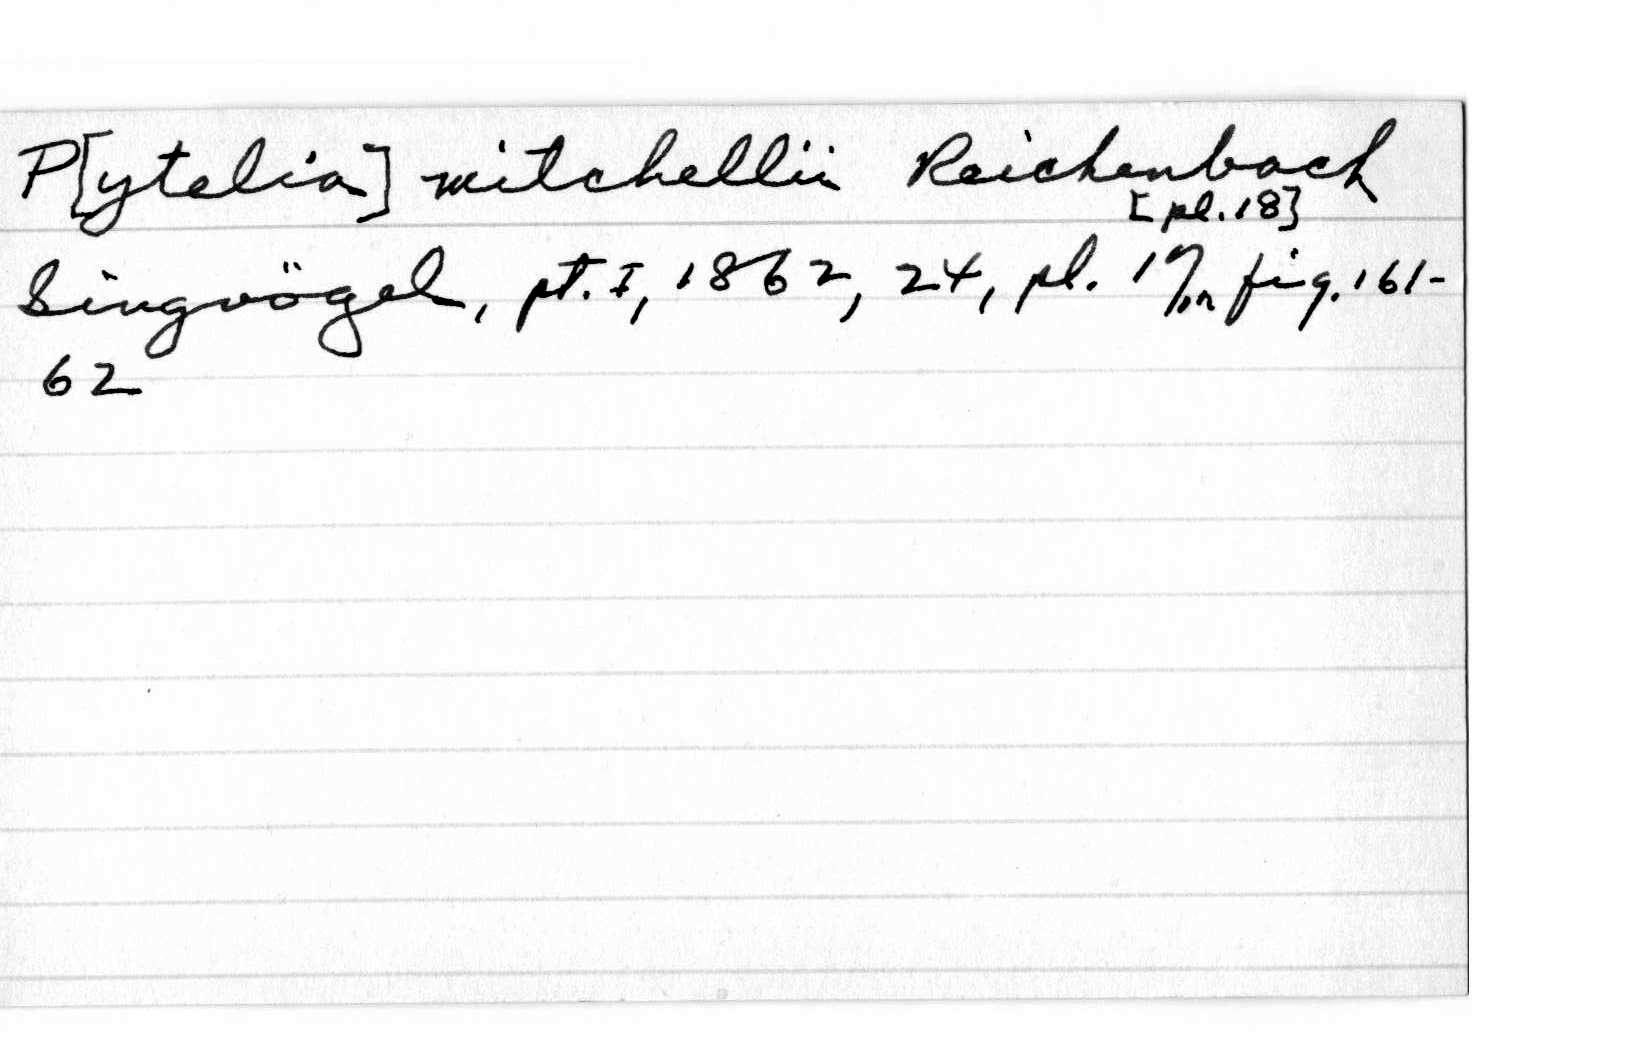 P[ytelia] mitchellii Reichenbach
[pl.18]
Singvögel, pt. I, 1862, 24, pl. 17, fig. 161-
62